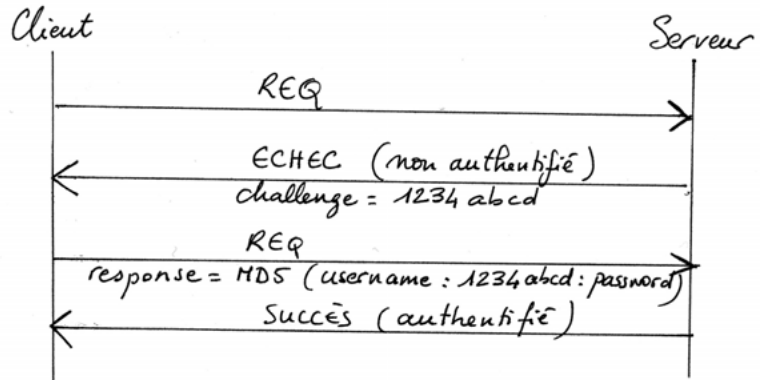 Client
Serveur
REQ
ECHEC (non authentifié)
challenge = 1234abcd
REQ
response = MD5 (username : 1234abcd : password)
SUCCÈS (authentifié)